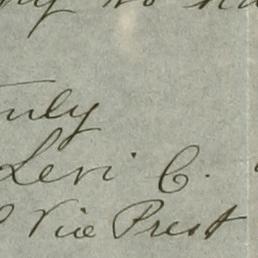 to
Truly
Levi C.
Vice Prest